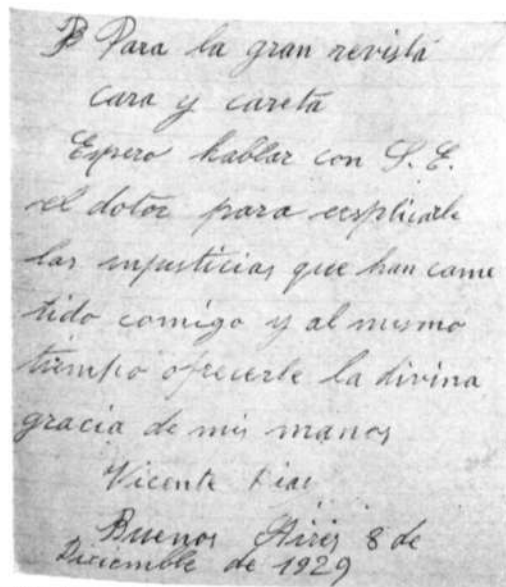 Para la gran revista
cara y careta
Espero hablar con S. E.
el dotor para esplicarle
las injusticias que han come
tido comigo y al mismo
tiempo ofrecerle la divina
gracia de mis manos
Vicente Dias
Buenos Aires 8 de
Diciembre de 1929